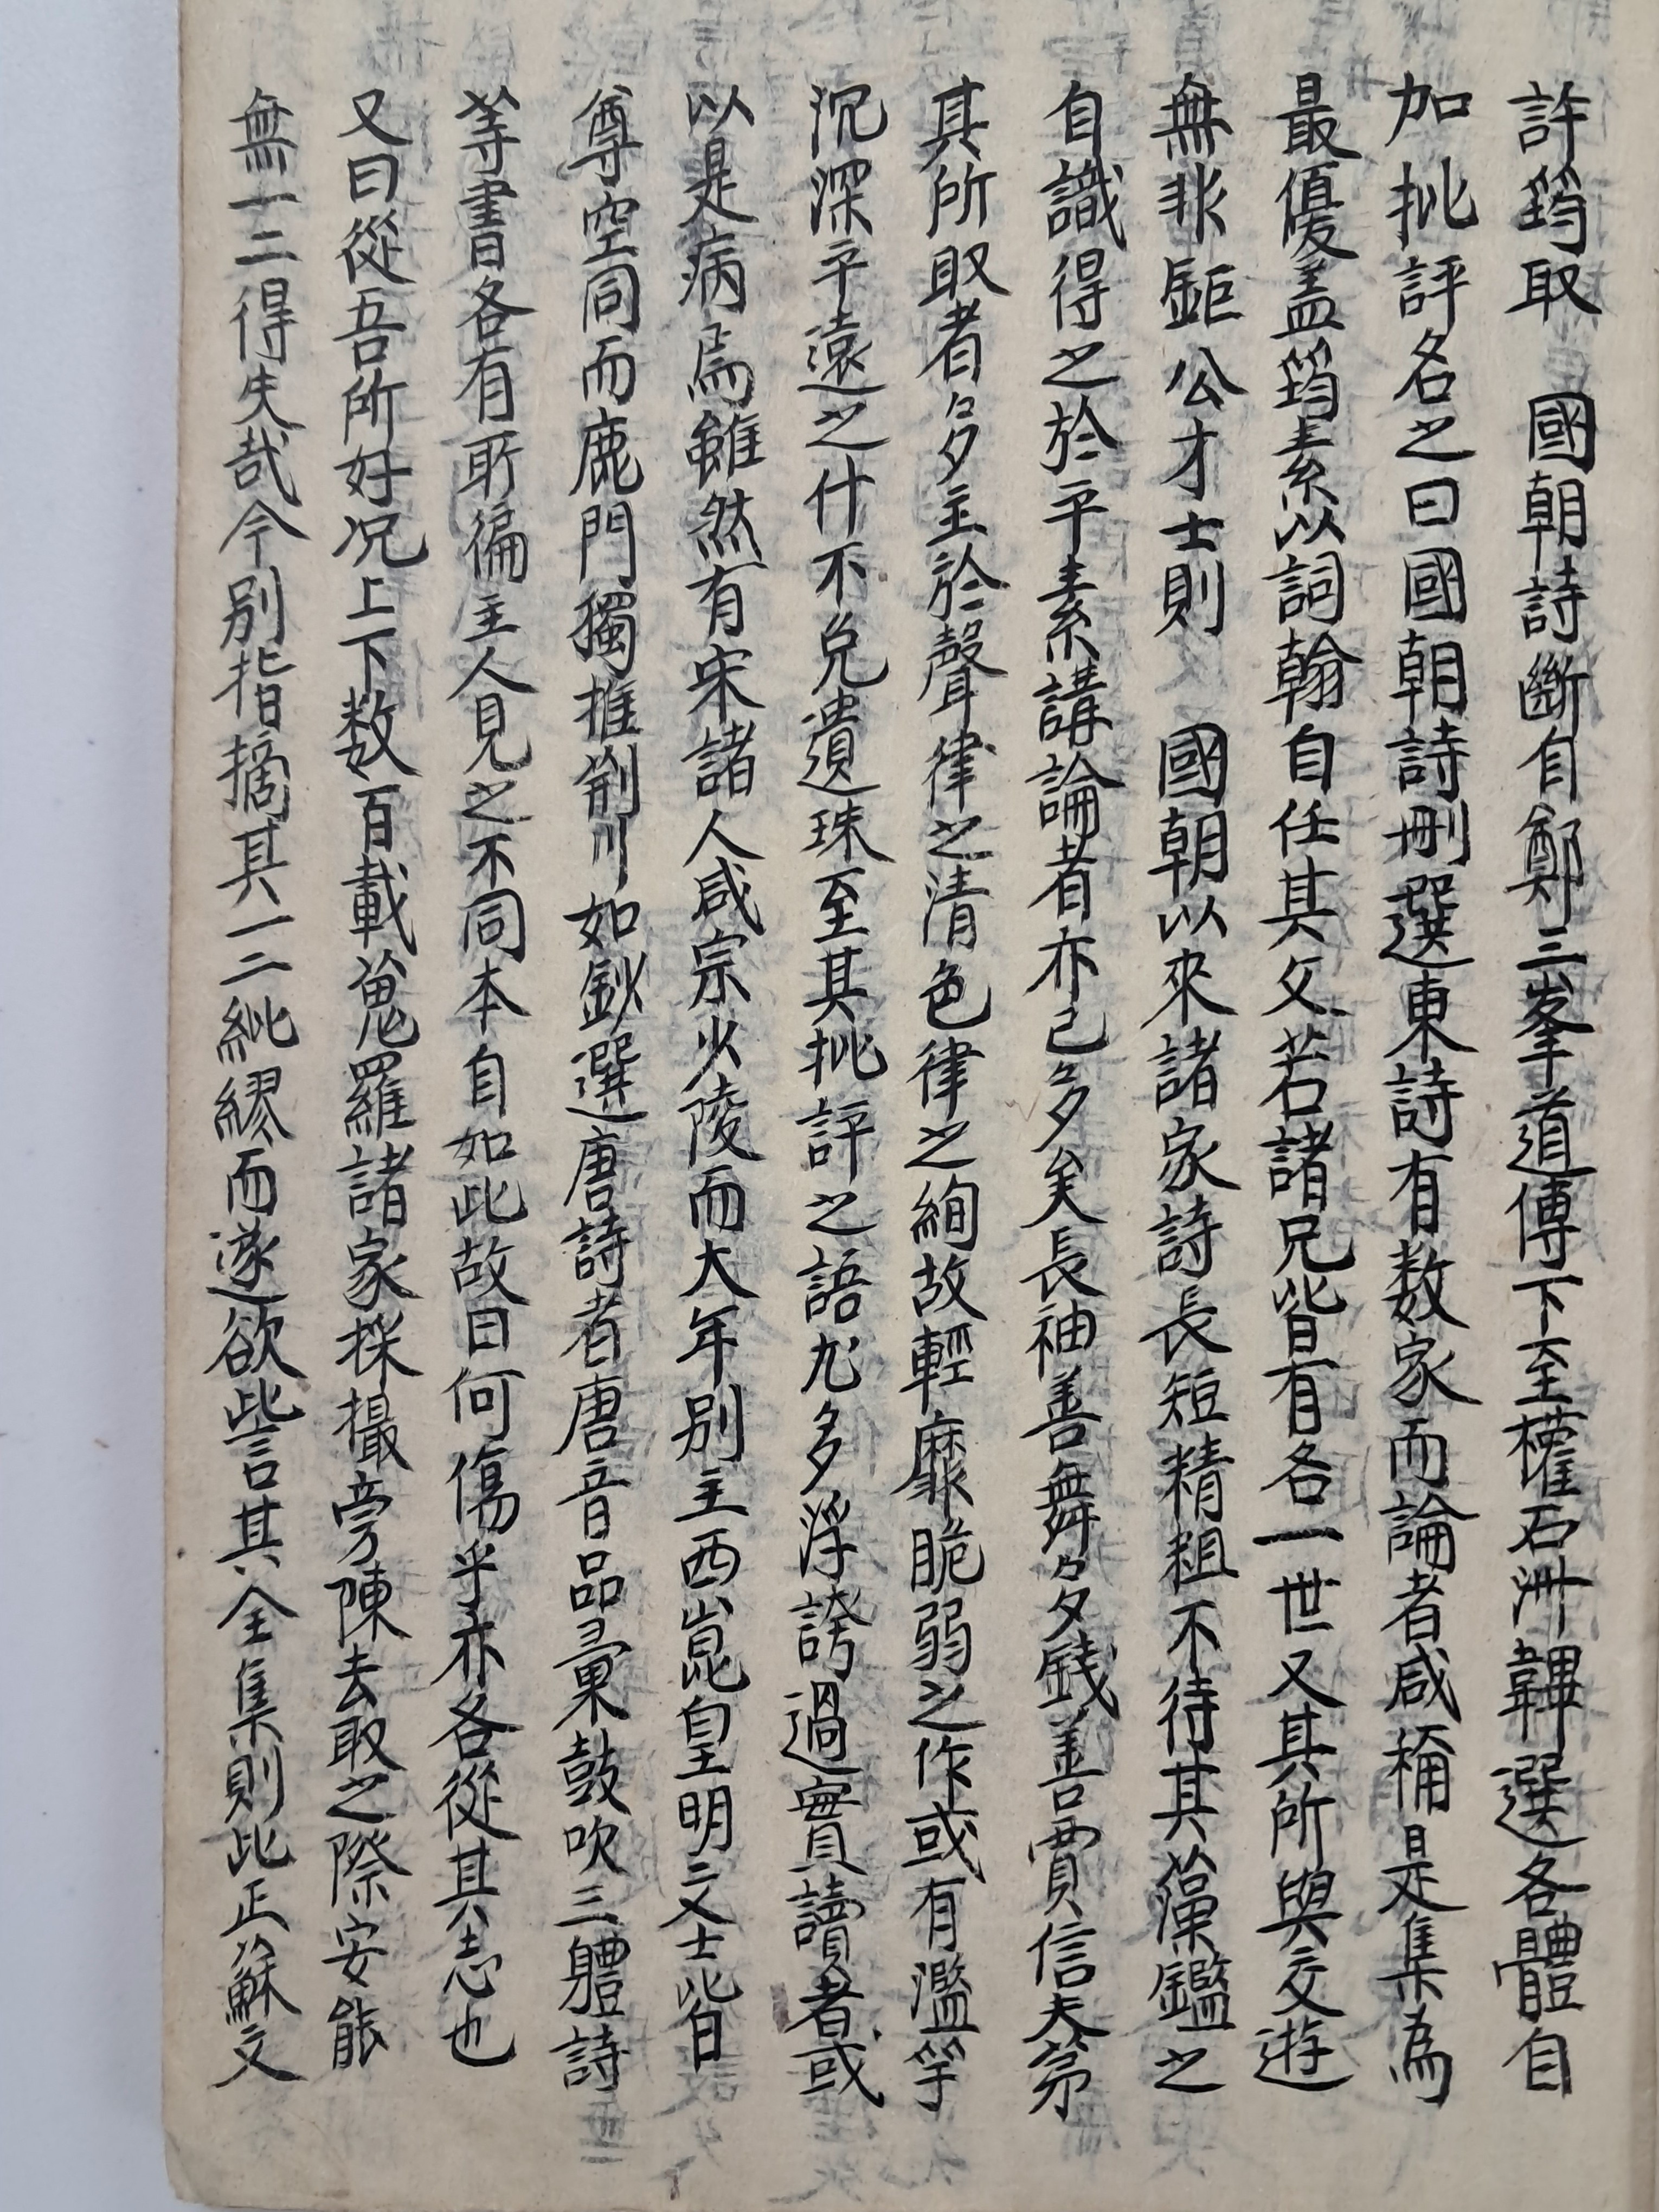 許筠取 國朝詩斷自鄭三峯道傳下至權石洲韠選各體自
加批評名之曰國朝詩刪選東詩有数家而論者咸稱是集為
最優盖筠素以詞翰自任其父若諸兄皆有各一世又其所與交遊
無非鉅公才士則 國朝以來諸家詩長短精粗不待其藻鑑之
自識得之於平素講論者亦已多矣長袖善舞多錢善賈信夫苐
其所取者多主於聲律之清色律之絢故輕靡脆弱之作或有濫竽
沉深平遠之什不免遺珠至其批評之語尤多浮誇過實讀者或
以是病焉雖然有宋諸人咸宗少陵而大年別主西崑皇明文士皆
尊空同而鹿門獨推荊川如鈔選唐詩者唐音品彙鼓吹三體詩
等書各有所偏主人見之不同本自如此故曰何傷乎亦各從其志也
又曰從吾所好况上下数百載蒐羅諸家採撮旁陳去取之際安能
無一二得失哉今別指摘其一二紕繆而遂欲訾其全集則此正蘇文